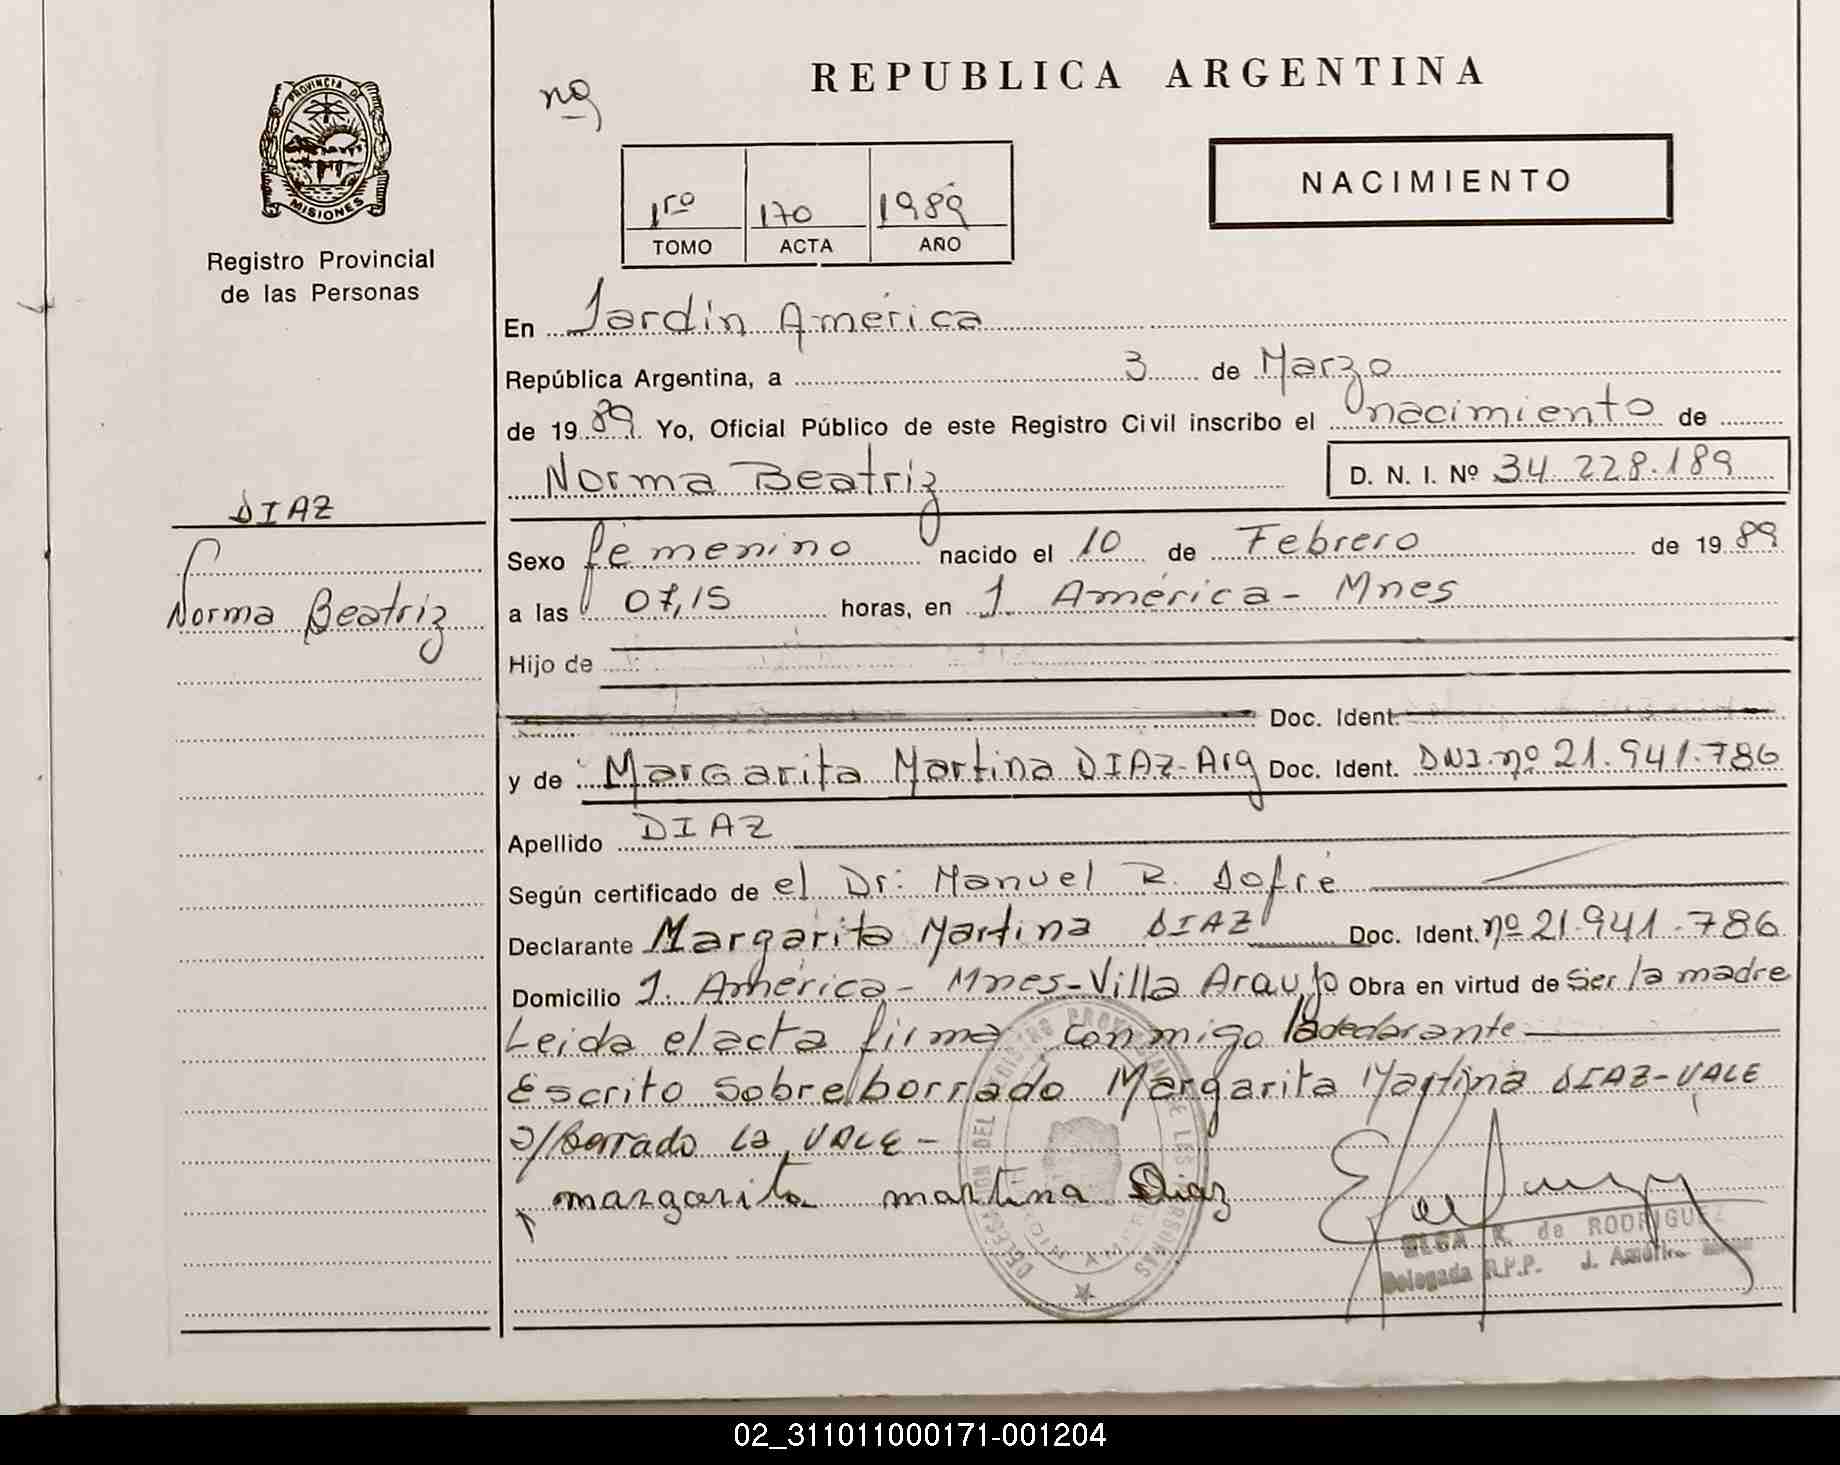 PROVINCIA DE
MISIONES
Registro Provincial
de las Personas
DIAZ
Norma Beatriz
ng
REPUBLICA ARGENTINA
NACIMIENTO
1ro 170 1989
TOMO ACTA AÑO
En Jardín América
República Argentina, a 3 de Marzo
de 1989 Yo, Oficial Público de este Registro Civil inscribo el nacimiento de
Norma Beatriz D. N. I. Nº 34.228.189
Sexo femenino nacido el 10 de Febrero de 1989
a las 07,15 horas, en J. América - Mnes
Hijo de
Doc. Ident.
y de Margarita Martina DIAZ-Arg Doc. Ident. DNI.nº 21.941.786
Apellido DIAZ
Según certificado de el Dr: Manuel R. Jofré
Declarante Margarita Martina DIAZ Doc. Ident. nº 21.941.786
Domicilio J. América - Mnes-Villa Araujo Obra en virtud de ser la madre
Leida el acta firma conmigo la declarante
Escrito sobre borrado Margarita Martina DIAZ-VALE
s/borrado la VALE-
margarita martina Diaz
DELEGACION DEL REGISTRO PROVINCIAL DE LAS PERSONAS
OLGA R. de RODRIGUEZ
Delegada R.P.P. J. América
02_311011000171-001204